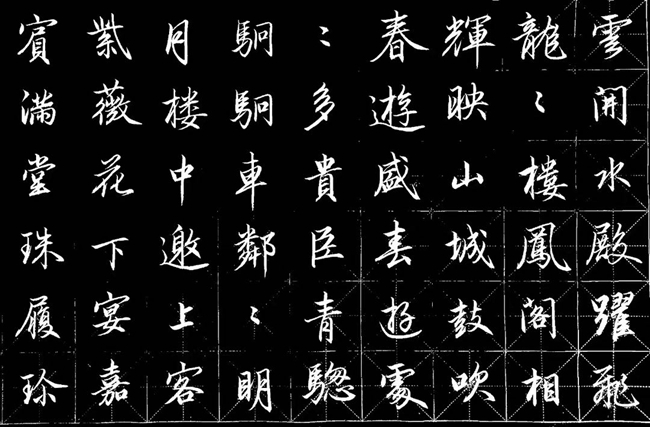 雲開水殿躍飛
龍〻樓鳳閣相
輝映山城鼓吹
春遊盛春逰處
〻多貴臣青驄
駉駉車鄰〻明
月楼中邀上客
紫薇花下宴嘉
賓滿堂珠履珍